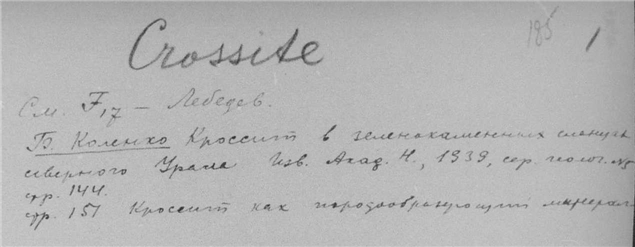 185 1
Crossite
См. F17 – Лебедев.
Б. Коленко Кроссит в зеленокаменных сланцах
северного Урала Изв. Акад. Н., 1939, сер. геолог. №5
стр. 144.
стр. 151 Кроссит как породообразующий минерал